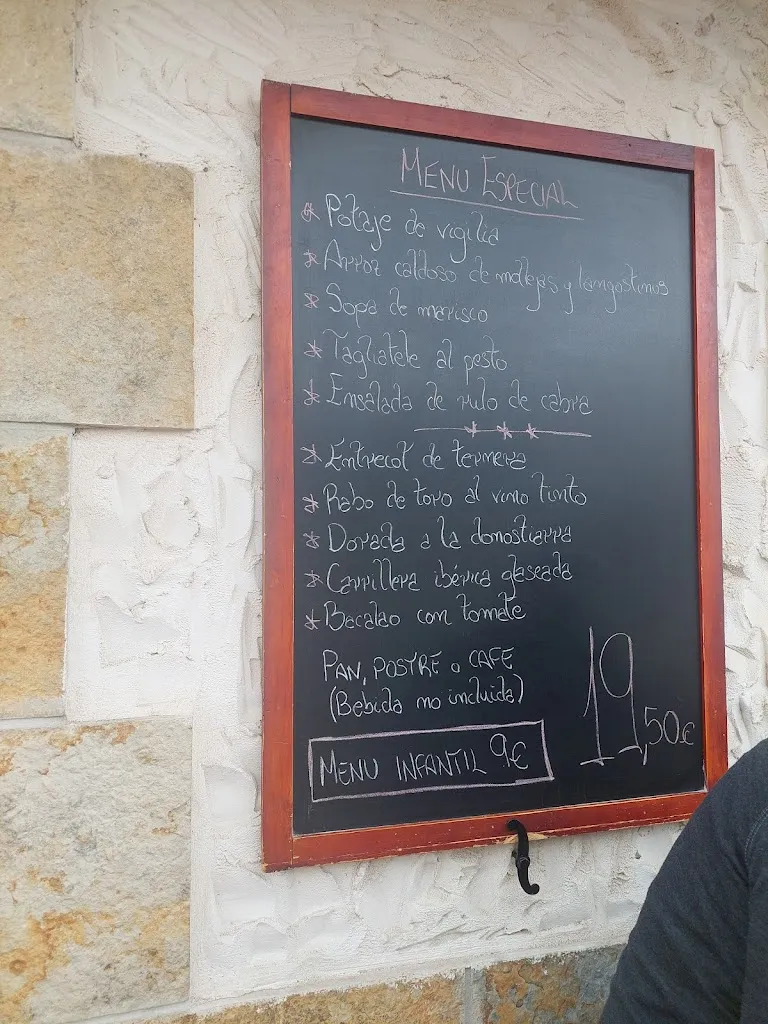 MENU ESPECIAL
* Potaje de vigilia
* Arroz caldoso de mollejas y langostinos
* Sopa de marisco
* Tagliatele al pesto
* Ensalada de rulo de cabra
* * *
* Entrecot de ternera
* Rabo de toro al vino tinto
* Dorada a la donostiarra
* Carrillera ibérica glaseada
* Bacalao con tomate
PAN, POSTRE o CAFE
(Bebida no incluida)
19,50€
MENU INFANTIL 9€